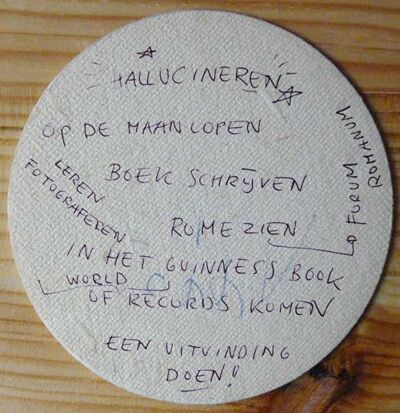 HALLUCINEREN
OP DE MAAN LOPEN
BOEK SCHRIJVEN
LEREN
FOTOGRAFEREN
ROME ZIEN
FORUM
ROMANUM
IN HET GUINNESS BOOK
WORLD
OF RECORDS KOMEN
EEN UITVINDING
DOEN!